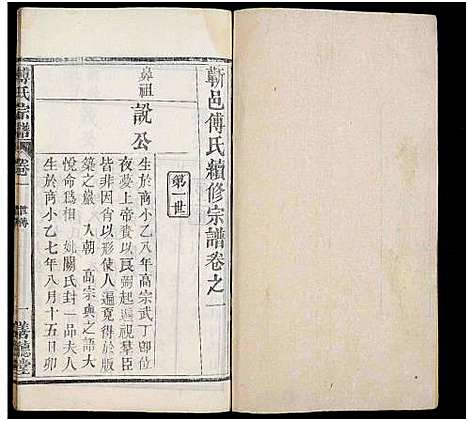 蘄邑傅氏續修宗譜卷之一
第一世
鼻祖
說公
生於商小乙八年高宗武丁卽位
夜夢上帝賚以良弼起遍視羣臣
皆非因肖以形使人遍覓得於版
築之巖入朝高宗與之語大
悅命爲相姚關氏封一品夫人
生於商小乙七年八月十五日卯
傅氏宗譜
卷一
一